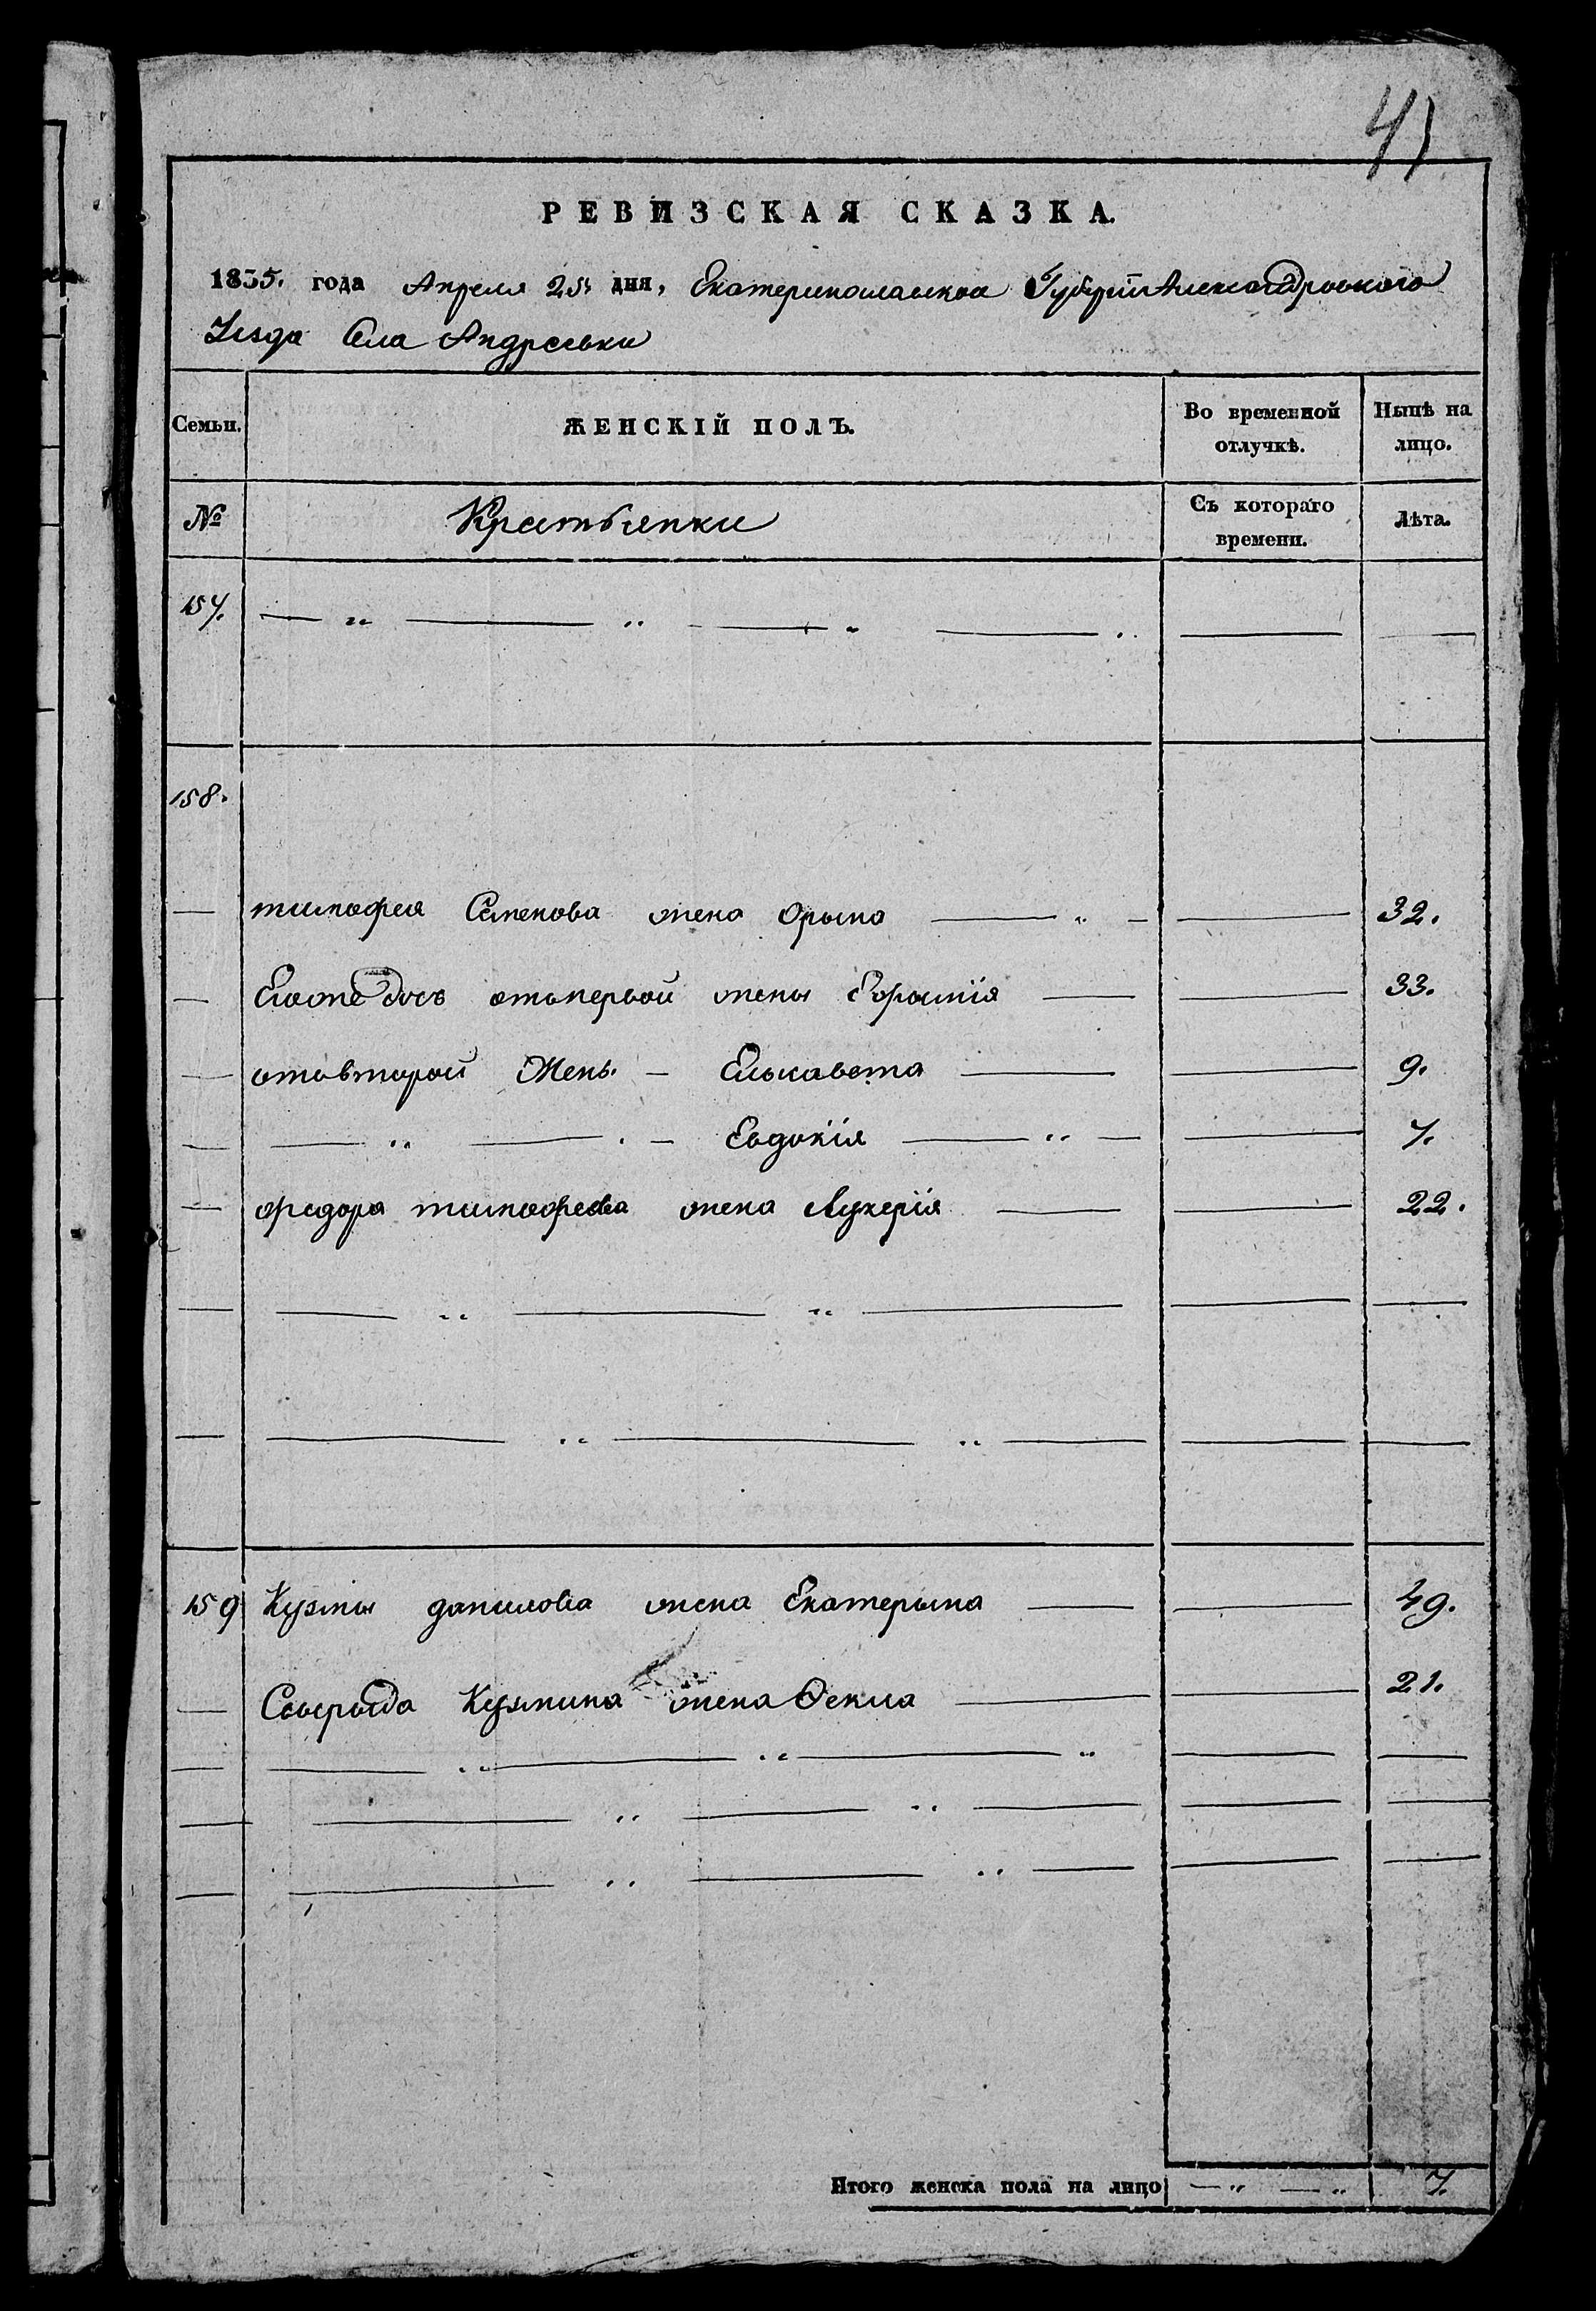 41
РЕВИЗСКАЯ СКАЗКА.
1835. года Апреля 25 дня, Екатеринославской Губерніи Александровского
Уезда Села Андреевки
Семьи. ЖЕНСКІЙ ПОЛЪ. Во временной отлучкѣ. Нынѣ на лицо.
№ Крестьянки Съ котораго времени. Лѣта.
157. — „ — „ — „ — „ — —
158.
— тимофея Семенова жена Орына — „ — — 32.
— Еиоже дочь отъпервой жены — — 33.
— отъвторой Жены. — Елысавета — — 9.
— — „ — . — Евдокія — „ — — 7.
— федора тимофеева жена Лукерія — — 22.
— — „ — „ — — —
— — „ — „ — — —
159 Кузмы данилова жена Екатерына — — 49.
— Северына Кузмина жена Фекла — — 21.
— — „ — „ — „ — —
— — „ — „ — — —
— — „ — „ — — —
Итого женска пола на лицо — „ — „ 7.